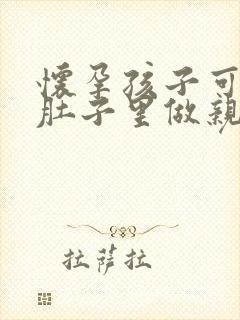 懷孕孩子可
肚子里做親
拉薩拉